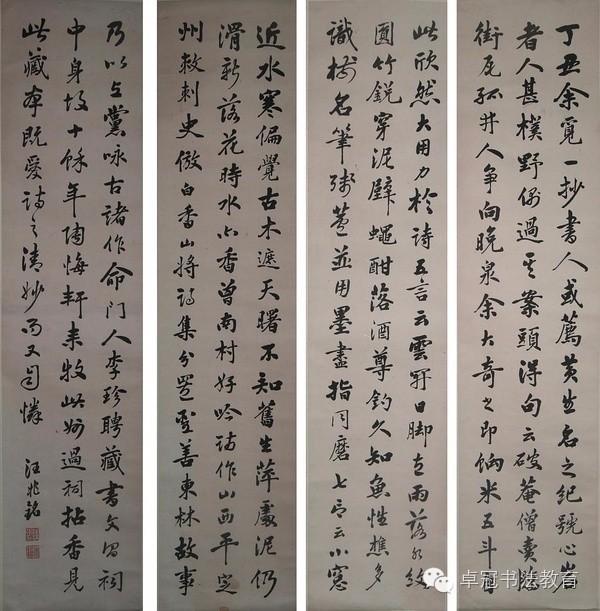 丁丑余覓一抄書人或薦黄生名之紀號心岩
者人甚樸野偶過其案頭得句云破菴僧賣臨
街瓦孤井人争向晚泉余大奇之即餉米五斗自
此欣然大用力於詩五言云雲開日脚直雨落水紋
圓竹鋭穿泥壁蠅酣落酒尊釣久知魚性樵多
識樹名筆殘蘆並用墨盡指同磨七言云小窓
近水寒偏覺古木遮天曙不知舊生萍處泥仍
滑新落花時水亦香曾南村好吟詩作山西平定
州刺史倣白香山將詩集分置聖善東林故事
乃以上黨咏古諸作命門人李珍聘藏書文昌祠
中身故十餘年陶悔軒来牧此州過祠拈香見
此藏本既愛詩之清妙而又自憐
汪兆銘
卓冠书法教育